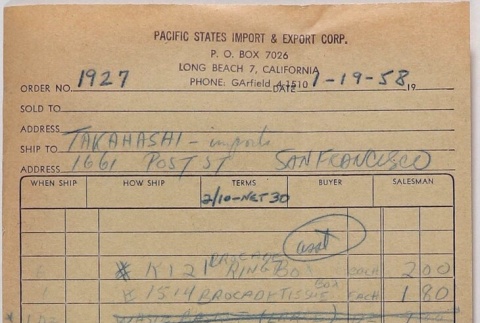 PACIFIC STATES IMPORT & EXPORT CORP.
P. O. BOX 7026
LONG BEACH 7, CALIFORNIA
PHONE: GArfield 4-1510
ORDER NO. 1927 DATE 1-19-58 19
SOLD TO
ADDRESS
SHIP TO TAKAHASHI - imports
ADDRESS 1661 POST ST SAN FRANCISCO
WHEN SHIP HOW SHIP TERMS BUYER SALESMAN
2/10-NET 30
asst
BROCADE
K121 RING BOX 200
BOX
1514 BROCADE TISSUE EACH 1 80